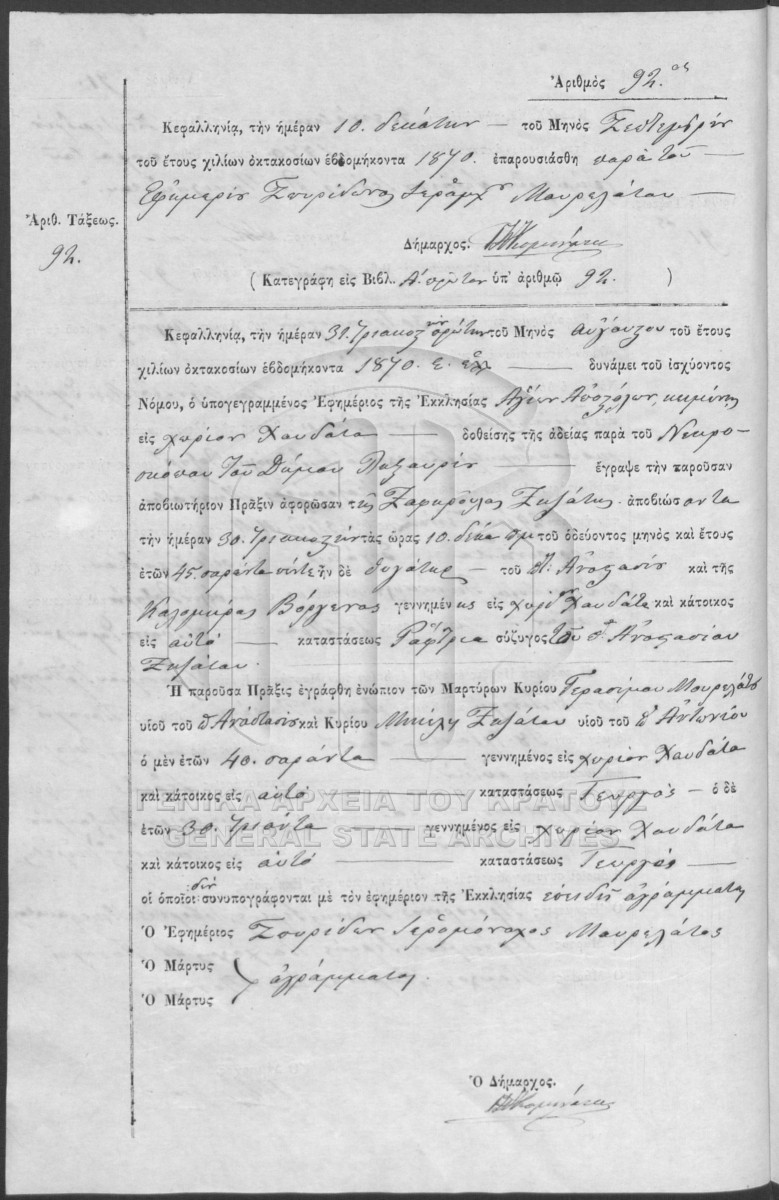 Ἀριθμὸς 92.ος
Κεφαλληνίᾳ, τὴν ἡμέραν 10. δεκάτην — τοῦ Μηνὸς Σεπτεμβρίου
τοῦ ἔτους χιλίων ὀκτακοσίων ἑβδομήκοντα 1870. ἐπαρουσιάσθη παρὰ τοῦ —
Ἐφημερίου Σπυρίδωνος Μουρελάτου —
Ἀριθ. Τάξεως.
92.
Δήμαρχος.
( Κατεγράφη εἰς Βιβλ. Α. πρῶτον ὑπ' ἀριθμῷ 92. )
Κεφαλληνίᾳ, τὴν ἡμέραν 31. τοῦ Μηνὸς Αὐγούστου τοῦ ἔτους
χιλίων ὀκτακοσίων ἑβδομήκοντα 1870. ε. — δυνάμει τοῦ ἰσχύοντος
Νόμου, ὁ ὑπογεγραμμένος Ἐφημέριος τῆς Ἐκκλησίας Ἁγίων Ἀποστόλων, κειμένης
εἰς χωρίον Χαυδάτα — δοθείσης τῆς ἀδείας παρὰ τοῦ Νεκρο-
σκόπου τοῦ Δήμου — ἔγραψε τὴν παροῦσαν
ἀποβιωτήριον Πρᾶξιν ἀφορῶσαν τῆς ἀποβιώσαντα
τὴν ἡμέραν 30. τὰς ὥρας 10. δέκα πμ τοῦ ὁδεύοντος μηνὸς καὶ ἔτους
ἐτῶν 45. σαράντα πέντε ἦν δὲ θυγάτηρ — τοῦ Ἀναστασίου καὶ τῆς
Καλομοίρας γεννημένης εἰς χωρίον Χαυδάτα καὶ κάτοικος
εἰς αὐτὸ — καταστάσεως Ράφτρια σύζυγος τοῦ Ἀναστασίου
Ἡ παροῦσα Πρᾶξις ἐγράφθη ἐνώπιον τῶν Μαρτύρων Κυρίου Γερασίμου Μουρελάτου
υἱοῦ τοῦ Ἀναστασίου καὶ Κυρίου υἱοῦ τοῦ Ἀντωνίου
ὁ μὲν ἐτῶν 40. σαράντα — γεννημένος εἰς χωρίον Χαυδάτα
καὶ κάτοικος εἰς αὐτὸ — καταστάσεως Γεωργὸς — ὁ δὲ
ΓΕΝΙΚΑ ΑΡΧΕΙΑ ΤΟΥ ΚΡΑΤΟΥΣ
ἐτῶν 30. τριάντα — γεννημένος εἰς χωρίον Χαυδάτα
GENERAL STATE ARCHIVES
καὶ κάτοικος εἰς αὐτὸ — καταστάσεως Γεωργὸς —
οἱ ὁποῖοι δὲν συνυπογράφονται μὲ τὸν ἐφημέριον τῆς Ἐκκλησίας ἐπειδὴ ἀγράμματοι
Ὁ Ἐφημέριος Σπυρίδων Ἱερομόναχος Μουρελάτος
Ὁ Μάρτυς
ἀγράμματοι.
Ὁ Μάρτυς
Ὁ Δήμαρχος.